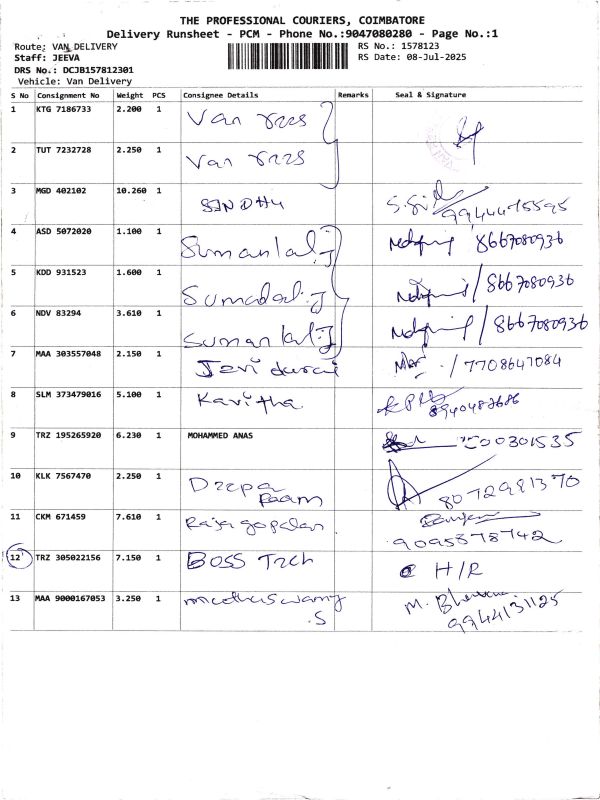 THE PROFESSIONAL COURIERS, COIMBATORE
Delivery Runsheet - PCM - Phone No.:9047080280 - Page No.:1
Route: VAN DELIVERY
RS No.: 1578123
Staff: JEEVA
RS Date: 08-Jul-2025
DRS No.: DCJB157812301
Vehicle: Van Delivery
S No Consignment No Weight PCS Consignee Details Remarks Seal & Signature
1 KTG 7186733 2.200 1 Van
2 TUT 7232728 2.250 1 Van
3 MGD 402102 10.260 1 SINDHU 9944475595
4 ASD 5072020 1.100 1 Sumanlal.J 8667080936
5 KDD 931523 1.600 1 8667080936
6 NDV 83294 3.610 1 Sumanlal.J 8667080936
7 MAA 303557048 2.150 1 7708647084
8 SLM 373479016 5.100 1 Kavitha
9 TRZ 195265920 6.230 1 MOHAMMED ANAS
10 KLK 7567470 2.250 1 Deepa Raam 8072981370
11 CKM 671459 7.610 1 Rajagopalan 9095878742
12 TRZ 305022156 7.150 1 BOSS Tech H/R
13 MAA 9000167053 3.250 1 M.
.S 9944131125